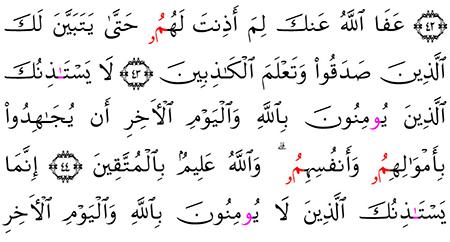 ﴿٤٢﴾ عَفَا اَ۬للَّهُ عَنكَ لِمَ أَذِنتَ لَهُمُۥ حَتَّىٰ يَتَبَيَّنَ لَكَ
اَ۬لَّذِينَ صَدَقُواْ وَتَعْلَمَ اَ۬لْكَٰذِبِينَ ﴿٤٣﴾ لَا يَسْتَٰذِنُكَ
اَ۬لَّذِينَ يُومِنُونَ بِاللَّهِ وَالْيَوْمِ اِ۬لْأٓخِرِ أَن يُجَٰهِدُواْ
بِأَمْوَٰلِهِمُۥ وَأَنفُسِهِمُۥۗ وَاللَّهُ عَلِيمُۢ بِالْمُتَّقِينَ ﴿٤٤﴾ إِنَّمَا
يَسْتَٰذِنُكَ اَ۬لَّذِينَ لَا يُومِنُونَ بِاللَّهِ وَالْيَوْمِ اِ۬لْأٓخِرِ